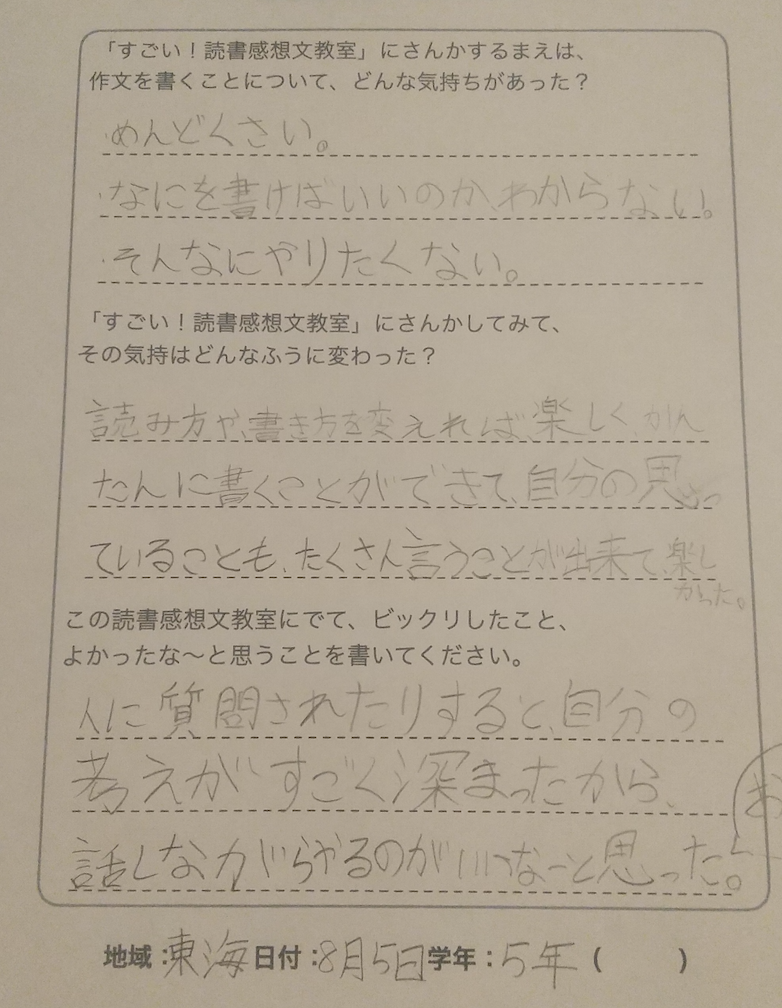 「すごい！読書感想文教室」にさんかするまえは、
作文を書くことについて、どんな気持ちがあった？
・めんどくさい。
・なにを書けばいいのか、わからない。
・そんなにやりたくない。
「すごい！読書感想文教室」にさんかしてみて、
その気持はどんなふうに変わった？
読み方や、書き方を変えれば、楽しく、かん
たんに書くことができて、自分の思っ
ていることも、たくさん言うことが出来て、楽し
かった。
この読書感想文教室にでて、ビックリしたこと、
よかったな〜と思うことを書いてください。
人に質問されたりすると、自分の
考えがすごく深まったから、
話しながらやるのがいいなーと思った。
地域：東海日付：8月5日学年：5年（　　　）